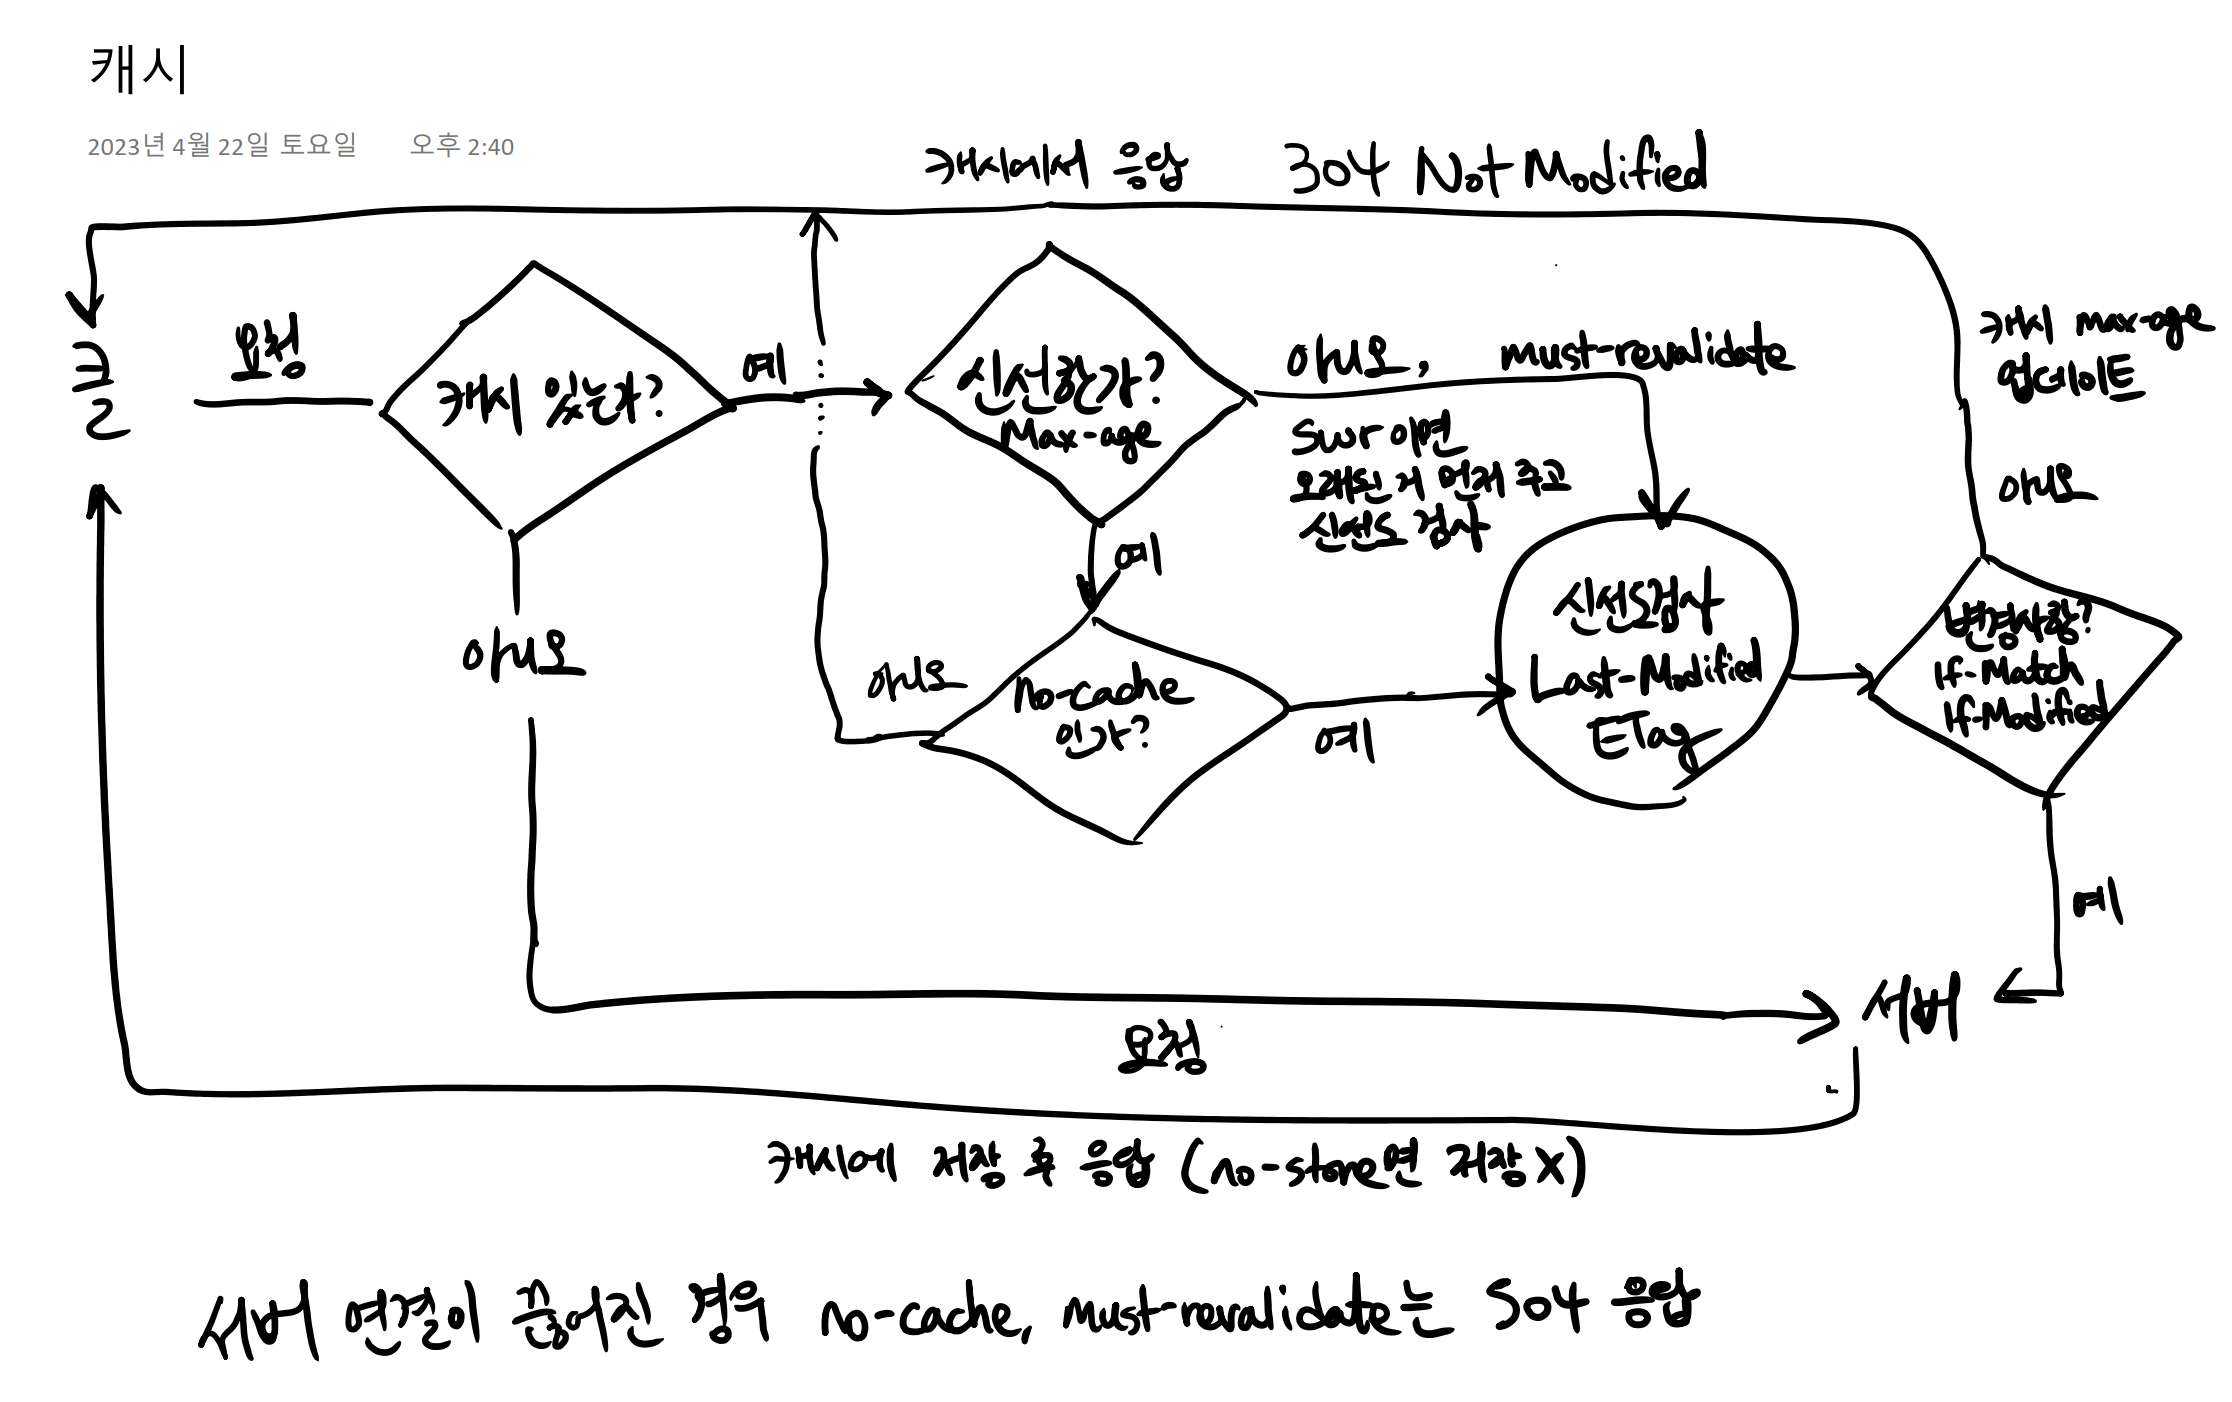 캐시
2023년 4월 22일 토요일 오후 2:40
캐시에서 응답 304 Not Modified
클
요청
캐시 있는가?
예
신선한가?
Max-age
아니오, must-revalidate
swr 이면
오래된 거 먼저 주고
신선도 검사
캐시 max-age
업데이트
아니오
예
아니오
아니오
no-cache
인가?
예
신선도검사
Last-Modified
ETag
변경사항?
If-Match
If-Modified
예
서버
요청
캐시에 저장 후 응답 (no-store면 저장 X)
서버 연결이 끊어진 경우 no-cache, must-revalidate는 504 응답